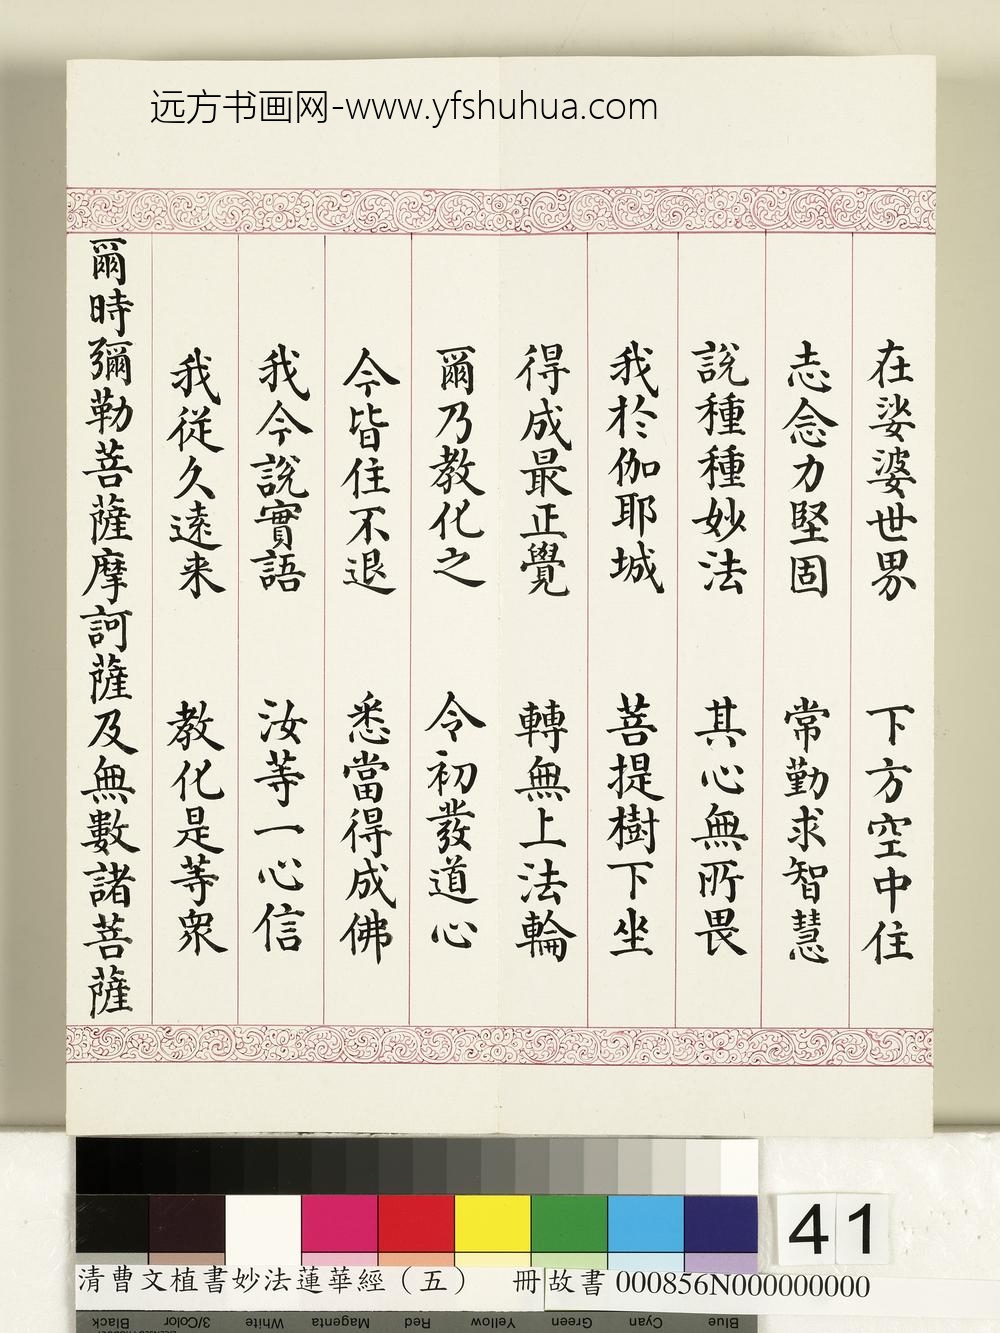 远方书画网-www.yfshuhua.com
在娑婆世界 下方空中住
志念力堅固 常勤求智慧
說種種妙法 其心無所畏
我於伽耶城 菩提樹下坐
得成最正覺 轉無上法輪
爾乃教化之 令初發道心
今皆住不退 悉當得成佛
我今說實語 汝等一心信
我從久遠来 教化是等衆
爾時彌勒菩薩摩訶薩及無數諸菩薩
41
清曹文植書妙法蓮華經（五） 冊 故書 000856N000000000
Black 3/Color White Magenta Red Yellow Green Cyan Blue